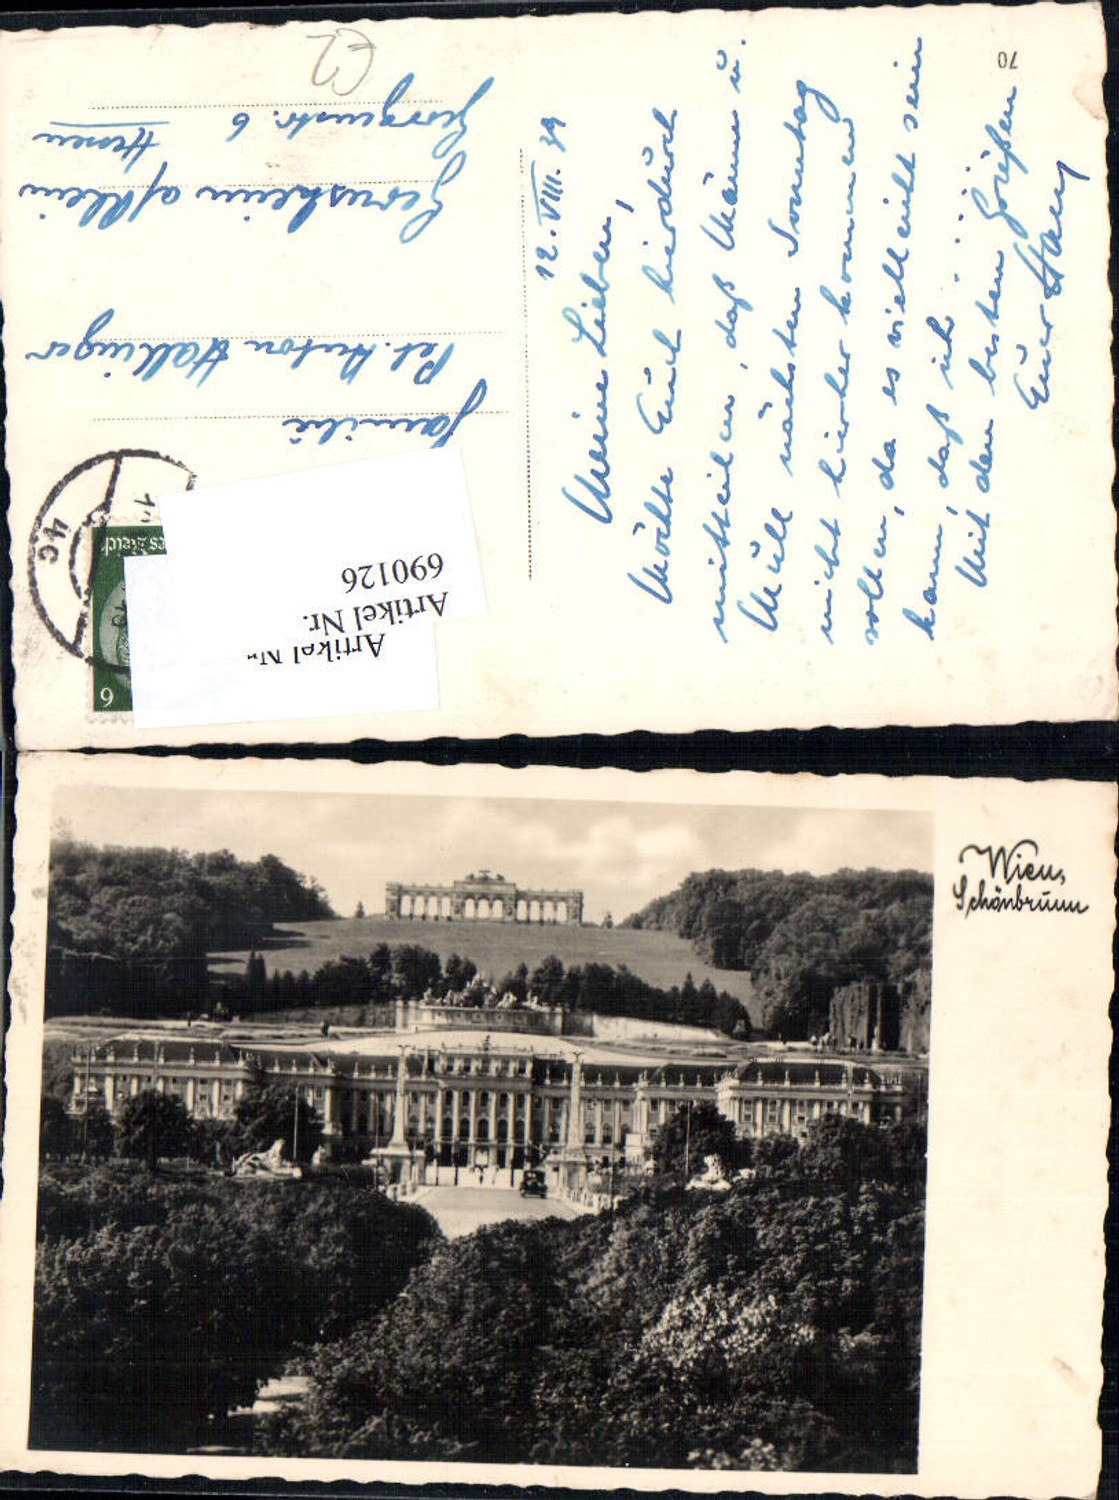 12. VIII. 39
Meine Lieben,
Möchte Euch hierdurch
mitteilen, daß Mämm u.
Mull nächsten Sonntag
nicht hierher kommen
sollen, da es vielleicht sein
kann, daß ich . . . . . .
Mit den besten Grüßen
Euer Hans
70
Familie
Pet. Anton Hallinger
Gernsheim a/Rhein
Georgenstr. 6 Hessen
Artikel Nr.
690126
Artikel Nr.
6
Wien,
Schönbrunn